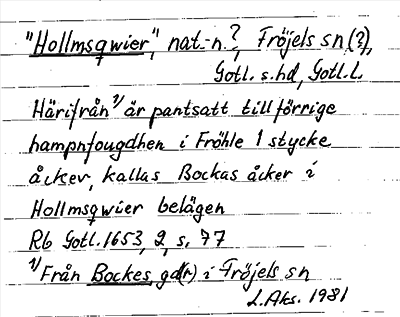 "Hollmsqwier", nat.-n.?, Fröjels sn (?),
Gotl. s.hd, Gotl. l.
Härifrån 1) är pantsatt till förrige
hampnfougdhen i Fröhle 1 stycke
åcker, kallas Bockas åcker i
Hollmsqwier belägen
Rb Gotl. 1653, 2, s. 77
1) Från Bockes gd(r) i Fröjels sn
L. Aks. 1981